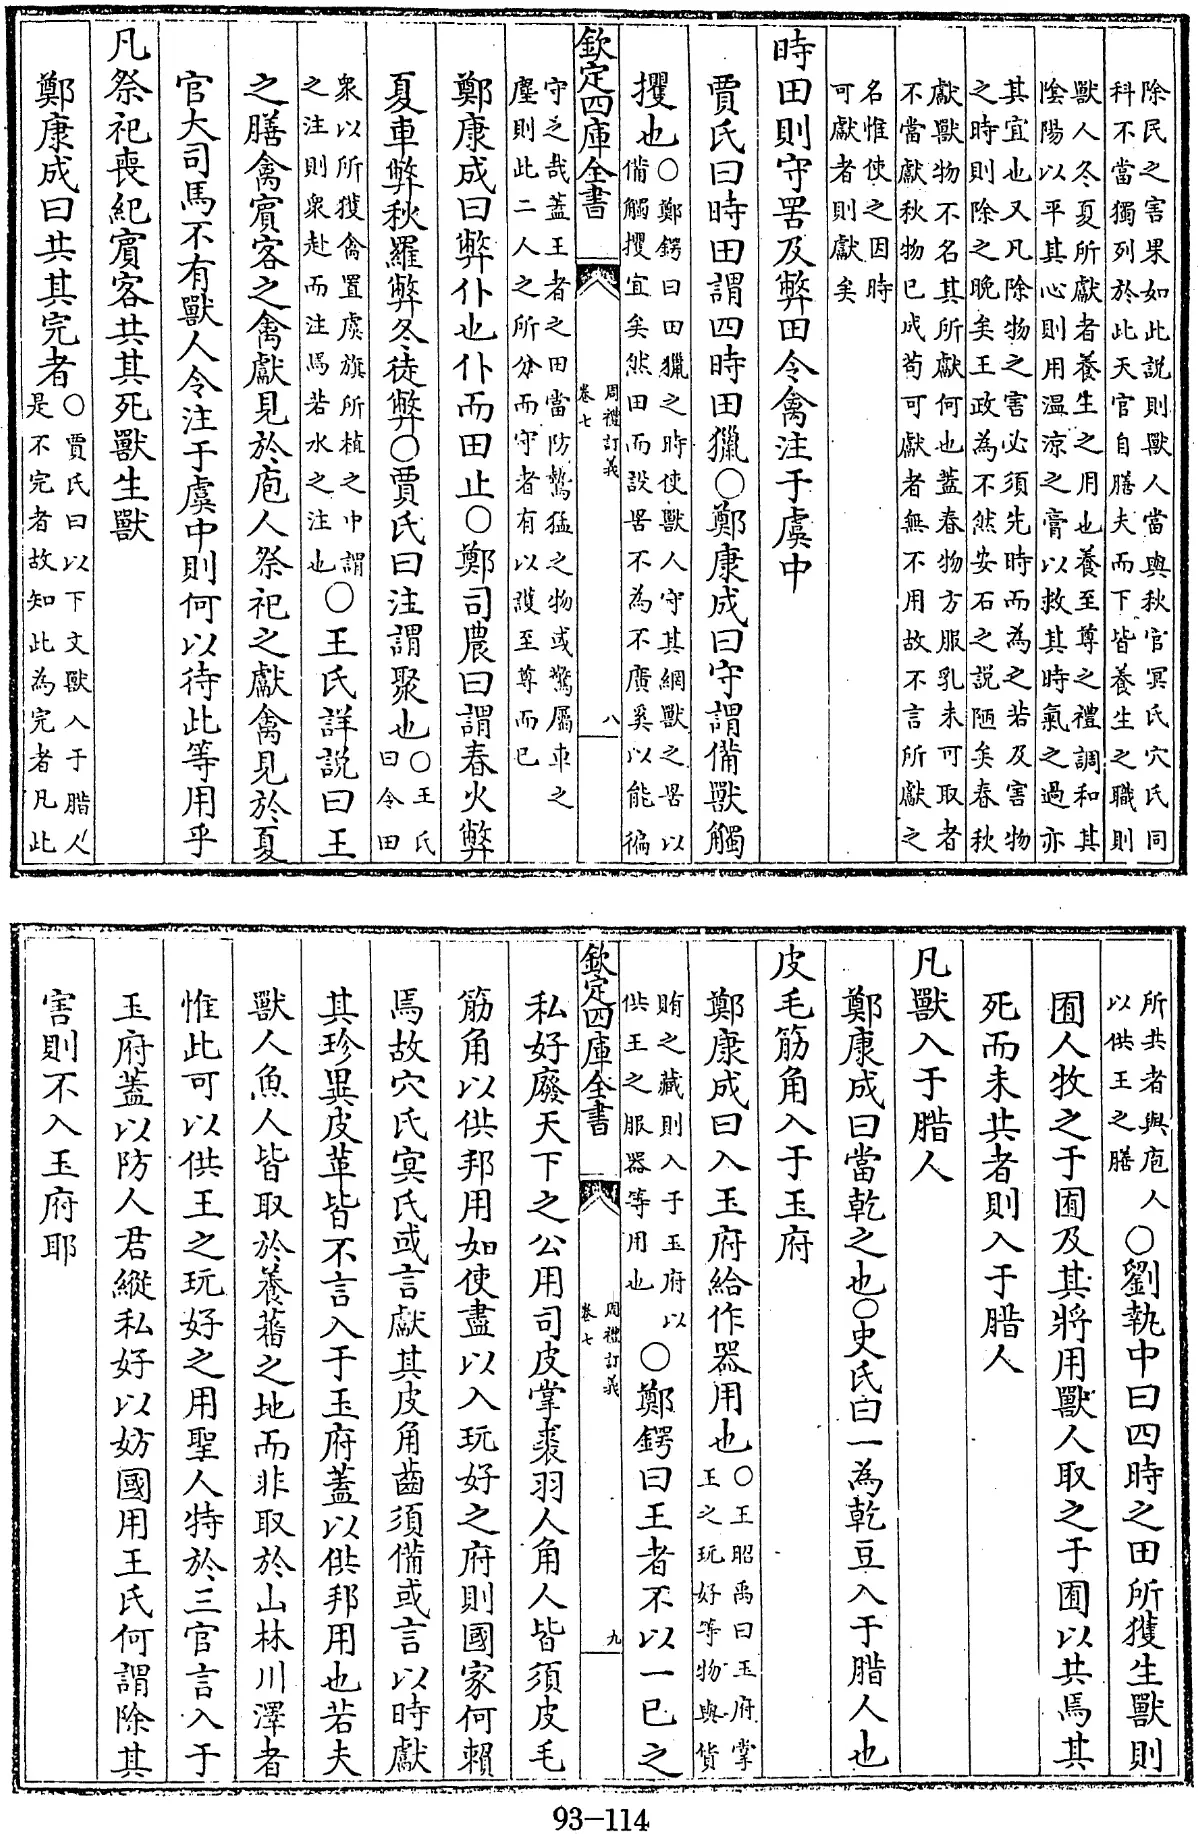 除民之害果如此説則獸人當與秋官冥氏穴氏同
科不當獨列於此天官自膳夫而下皆養生之職則
獸人冬夏所獻者養生之用也養至尊之禮調和其
陰陽以平其心則用温涼之膏以救其時氣之過亦
其宜也又凡除物之害必須先時而為之若及害物
之時則除之晚矣王政為不然安石之説陋矣春秋
獻獸物不名其所獻何也蓋春物方服乳未可取者
不當獻秋物已成苟可獻者無不用故不言所獻之
名惟使之因時
可獻者則獻矣
時田則守罟及弊田令禽注于虞中
賈氏曰時田謂四時田獵○鄭康成曰守謂備獸觸
攫也○鄭鍔曰田獵之時使獸人守其網獸之罟以
備觸攫宜矣然田而設罟不為不廣奚以能徧
欽定四庫全書
周禮訂義
卷七
八
守之哉蓋王者之田當防鷙猛之物或驚屬車之
塵則此二人之所分而守者有以護至尊而已
鄭康成曰弊仆也仆而田止○鄭司農曰謂春火弊
夏車弊秋羅弊冬徒弊○賈氏曰注謂聚也○王氏
曰令田
衆以所獲禽置虞旗所植之中謂
之注則衆赴而注焉若水之注也○王氏詳説曰王
之膳禽賓客之禽獻見於庖人祭祀之獻禽見於夏
官大司馬不有獸人令注于虞中則何以待此等用乎
凡祭祀喪紀賓客共其死獸生獸
鄭康成曰共其完者○賈氏曰以下文獸入于腊人
是不完者故知此為完者凡此
所共者與庖人
以供王之膳○劉執中曰四時之田所獲生獸則
囿人牧之于囿及其將用獸人取之于囿以共焉其
死而未共者則入于腊人
凡獸入于腊人
鄭康成曰當乾之也○史氏曰一為乾豆入于腊人也
皮毛筋角入于玉府
鄭康成曰入玉府給作器用也○王昭禹曰玉府掌
王之玩好等物與貨
賄之藏則入于玉府以
供王之服器等用也○鄭鍔曰王者不以一己之
欽定四庫全書
周禮訂義
卷七
九
私好廢天下之公用司皮掌裘羽人角人皆須皮毛
筋角以供邦用如使盡以入玩好之府則國家何賴
焉故穴氏冥氏或言獻其皮角齒須備或言以時獻
其珍異皮革皆不言入于玉府蓋以供邦用也若夫
獸人魚人皆取於養蕃之地而非取於山林川澤者
惟此可以供王之玩好之用聖人特於三官言入于
玉府蓋以防人君縱私好以妨國用王氏何謂除其
害則不入玉府耶
93-114